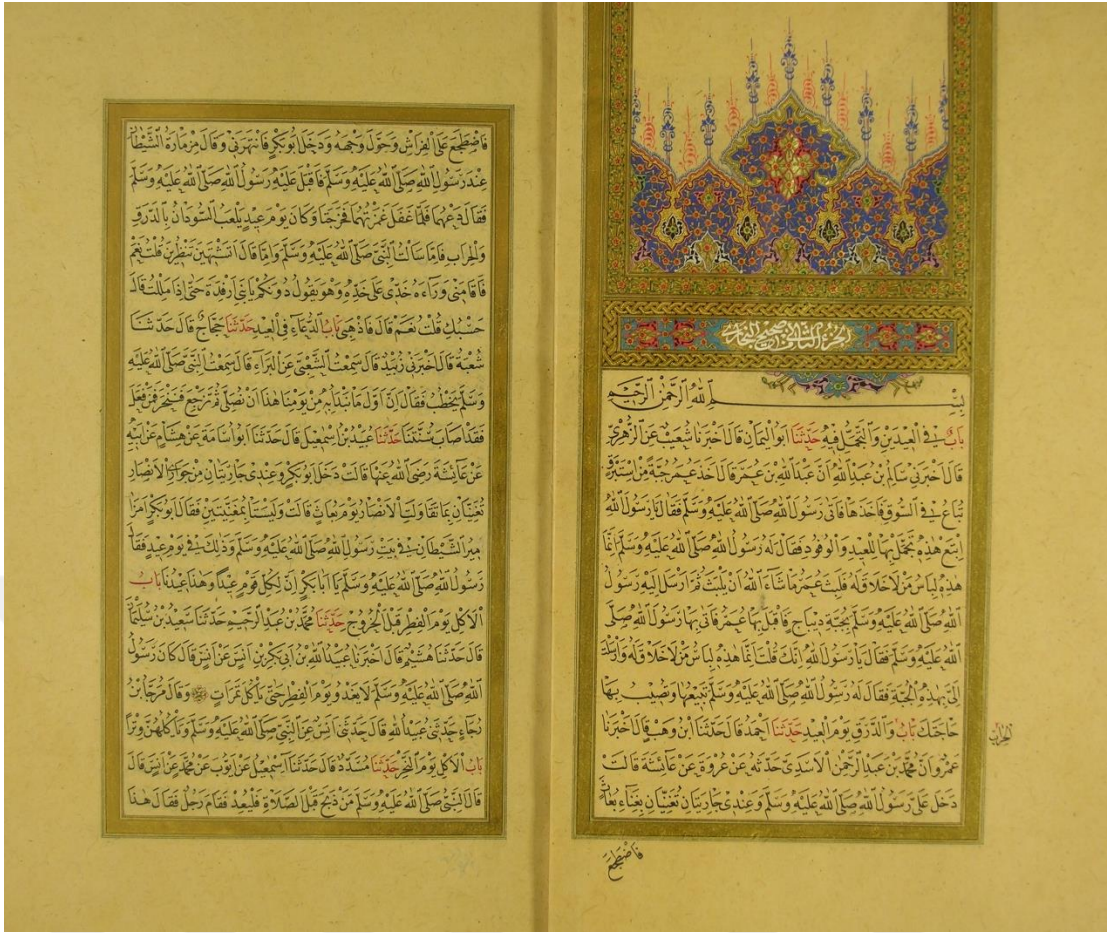 الجزء الثانى من صحيح البخارى
بسم الله الرحمن الرحيم
باب فى العيدين والتجمل فيه حدثنا ابو اليمان قال اخبرنا شعيب عن الزهرى
قال اخبرنى سالم بن عبد الله ان عبد الله بن عمر قال اخذ عمر جبة من استبرق
تباع فى السوق فاخذها فاتى رسول الله صلى الله عليه وسلم فقال يا رسول الله
ابتع هذه تجمل بها للعيد والوفود فقال له رسول الله صلى الله عليه وسلم انما
هذه لباس من لا خلاق له فلبث عمر ما شاء الله ان يلبث ثم ارسل اليه رسول
الله صلى الله عليه وسلم بجبة ديباج فاقبل بها عمر فاتى بها رسول الله صلى
الله عليه وسلم فقال يا رسول الله انك قلت انما هذه لباس من لا خلاق له وارسلت
الى بهذه الجبة فقال له رسول الله صلى الله عليه وسلم تبيعها وتصيب بها
حاجتك باب والدرق يوم العيد حدثنا احمد قال حدثنا ابن وهب قال اخبرنا
الحراب
عمرو ان محمد بن عبد الرحمن الاسدى حدثه عن عروة عن عائشة قالت
دخل على رسول الله صلى الله عليه وسلم وعندى جاريتان تغنيان بغناء بعاث
فاضطجع
فاضطجع على الفراش وحول وجهه ودخل ابو بكر فانتهرنى وقال مزمارة الشيطان
عند رسول الله صلى الله عليه وسلم فاقبل عليه رسول الله صلى الله عليه وسلم
فقال دعهما فلما غفل غمزتهما فخرجتا وكان يوم عيد يلعب السودان بالدرق
والحراب فاما سالت النبى صلى الله عليه وسلم واما قال اتشتهين تنظرين قلت نعم
فاقامنى وراءه خدى على خده وهو يقول دونكم يا بنى ارفدة حتى اذا مللت قال
حسبك قلت نعم قال فاذهبى باب الدعاء فى العيد حدثنا حجاج قال حدثنا
شعبة قال اخبرنى زبيد قال سمعت الشعبى عن البراء قال سمعت النبى صلى الله عليه
وسلم يخطب فقال ان اول ما نبدا به من يومنا هذا ان نصلى ثم نرجع فننحر فمن فعل
فقد اصاب سنتنا حدثنا عبيد بن اسمعيل قال حدثنا ابو اسامة عن هشام عن ابيه
عن عائشة رضى الله عنها قالت دخل ابو بكر وعندى جاريتان من جوارى الانصار
تغنيان بما تقاولت الانصار يوم بعاث قالت وليستا بمغنيتين فقال ابو بكر امزا
مير الشيطان فى بيت رسول الله صلى الله عليه وسلم وذلك فى يوم عيد فقال
رسول الله صلى الله عليه وسلم يا ابا بكر ان لكل قوم عيدا وهذا عيدنا باب
الاكل يوم الفطر قبل الخروج حدثنا محمد بن عبد الرحيم حدثنا سعيد بن سليمان
قال حدثنا هشيم قال اخبرنا عبيد الله بن ابى بكر بن انس عن انس قال كان رسول
الله صلى الله عليه وسلم لا يغدو يوم الفطر حتى ياكل تمرات وقال مرجا بن
رجاء حدثنى عبيد الله قال حدثنى انس عن النبى صلى الله عليه وسلم وياكلهن وترا
باب الاكل يوم النحر حدثنا مسدد قال حدثنا اسمعيل عن ايوب عن محمد عن انس قال
قال النبى صلى الله عليه وسلم من ذبح قبل الصلاة فليعد فقام رجل فقال هذا